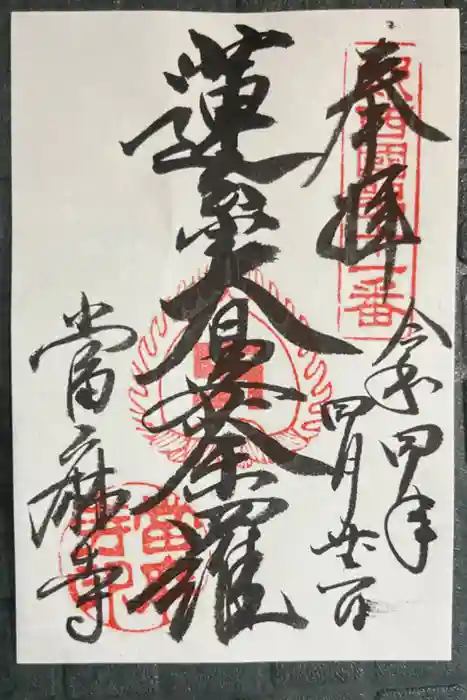 奉拝
新西國第十一番
令和四年
四月廿一日
蓮糸大曼荼羅
當麻寺
當麻寺印